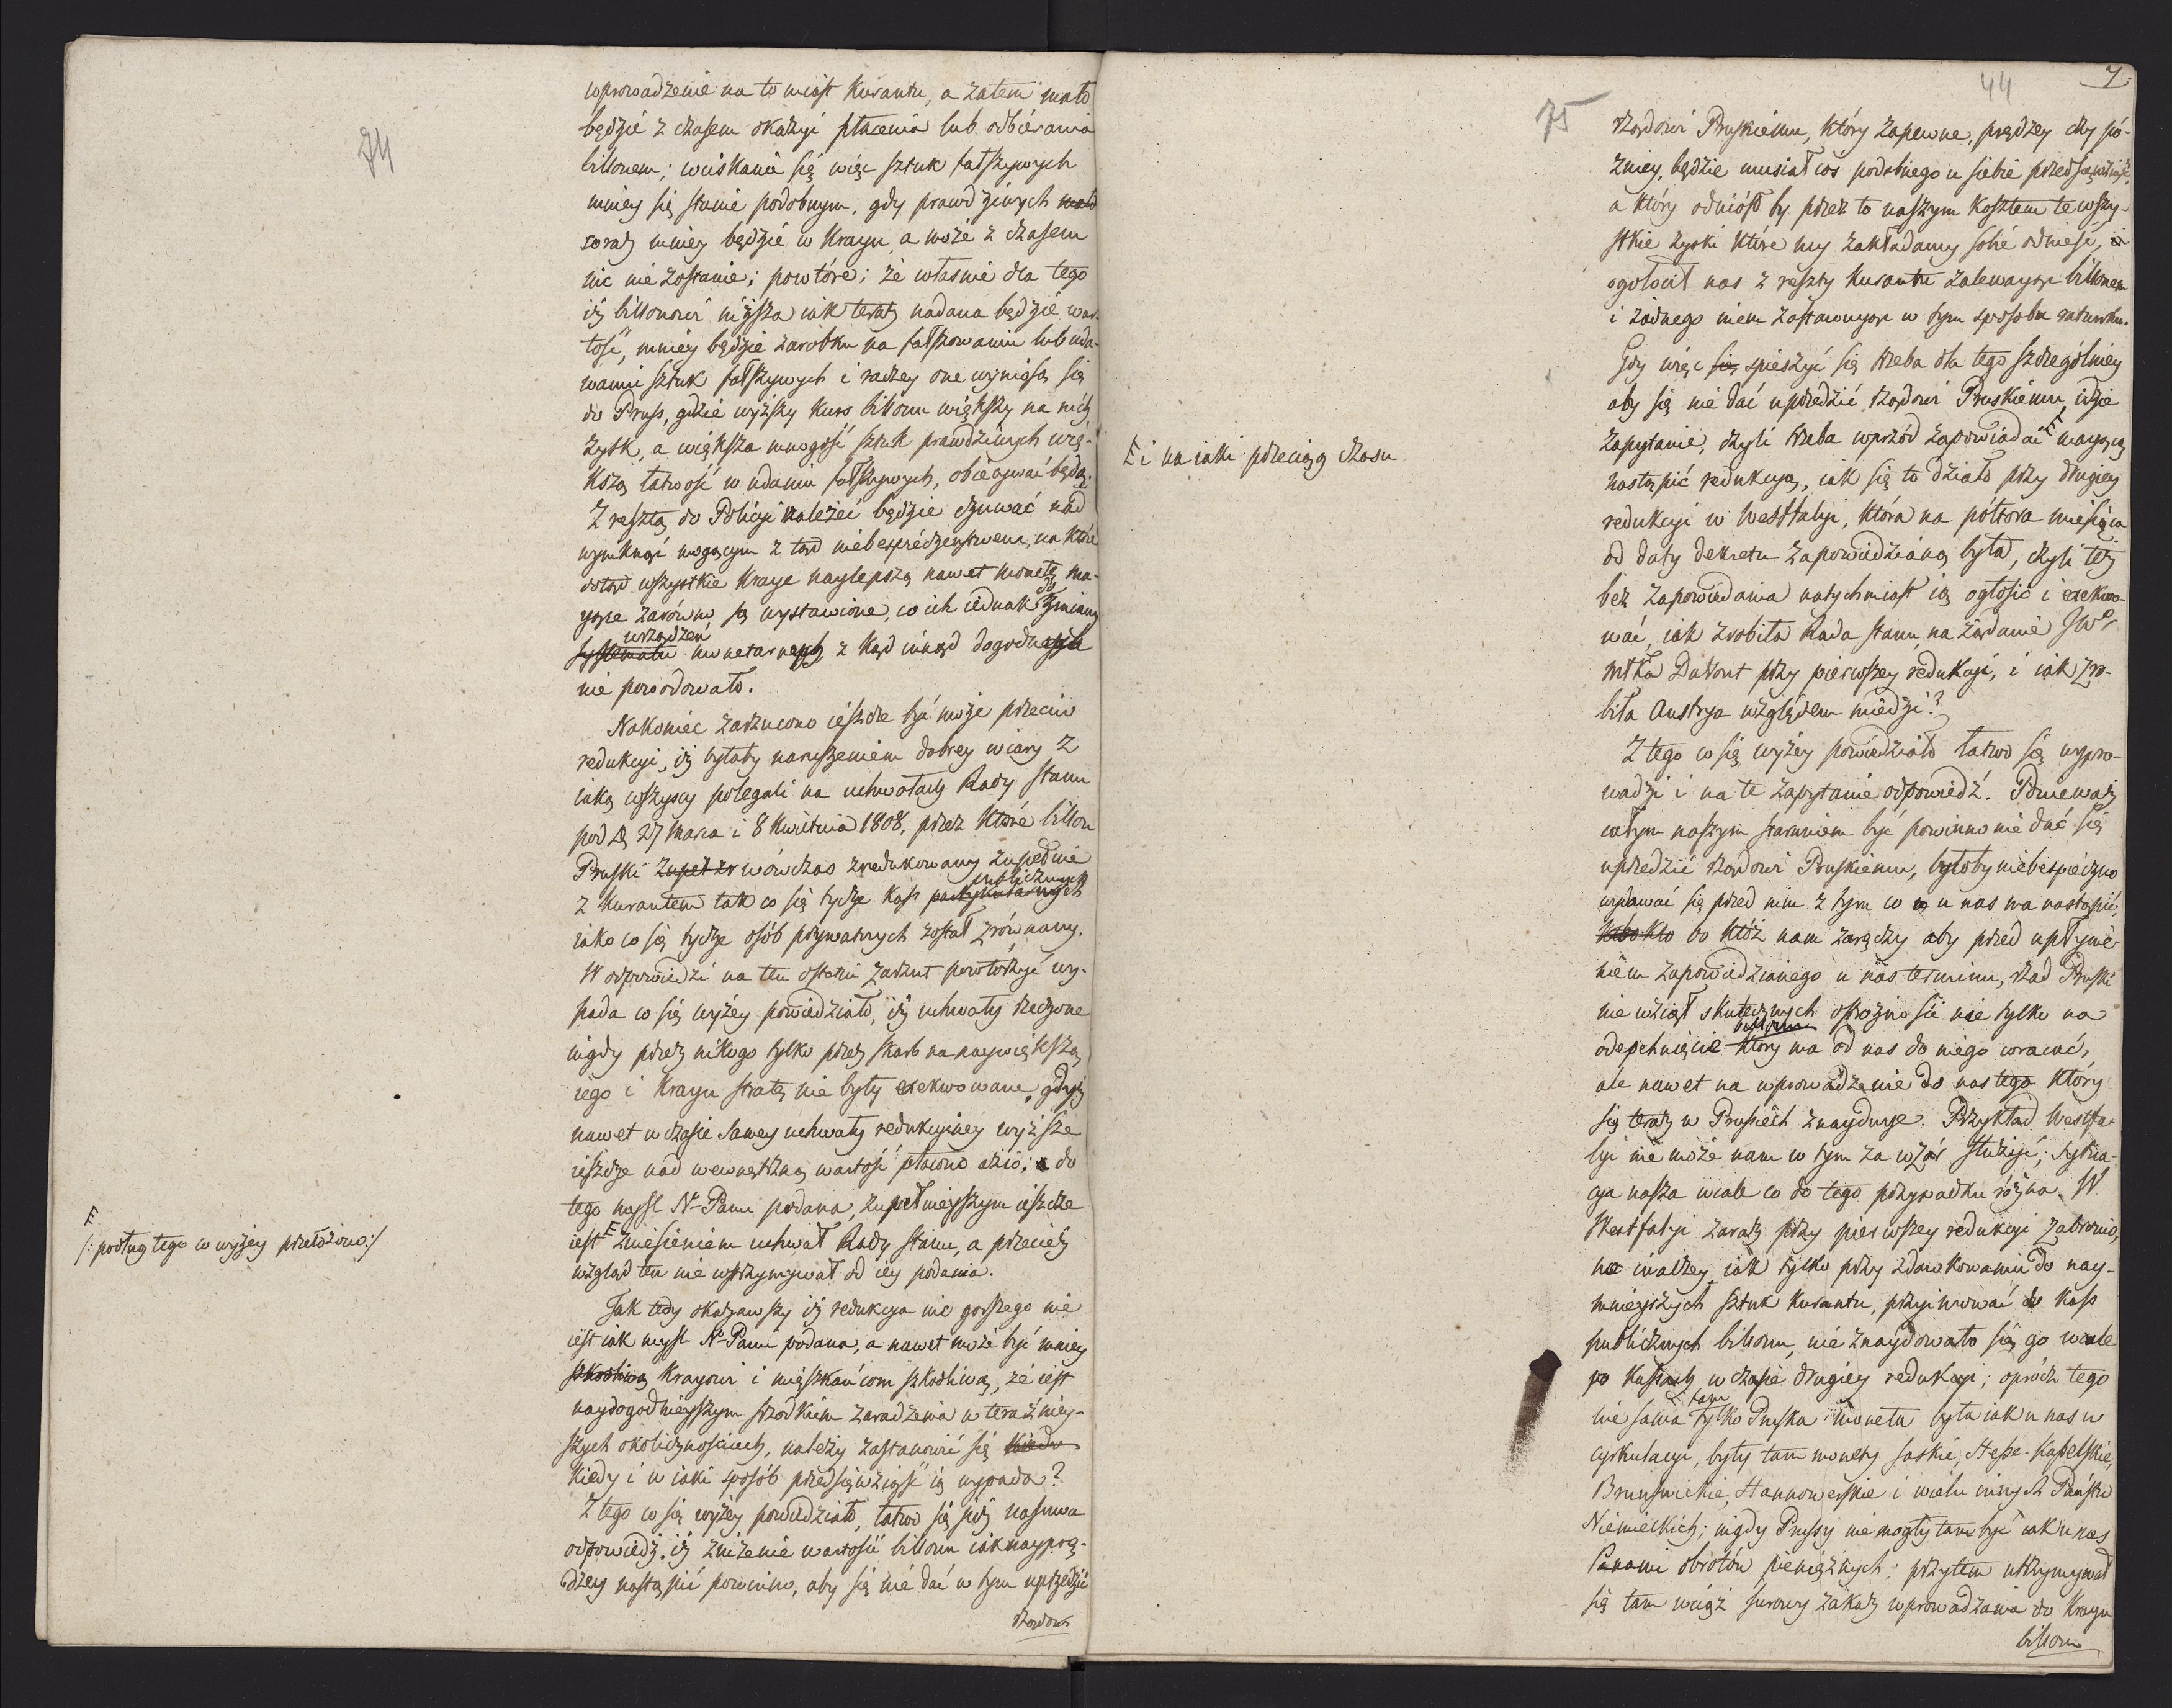 74
wprowadzenie na to miast Kurantu, a zatem mało
będzie z czasem okazyi płacenia lub odbierania
billonem; wciskanie się więc sztuk fałszywych
mniey się stanie podobnym, gdy prawdziwych mało
coraz mniey będzie w Kraju, a może z czasem
nic nie zostanie; powtóre: że własnie dla tego
iż billonowi niższa iak teraz nadana będzie war-
tość, mniey będzie zarobku na fałszowaniu lub uda-
waniu sztuk fałszywych i raczey one wyniosą się
do Pruss, gdzie wyższy kurs billonu większy na nich
zysk, a większa mnogość sztuk prawdziwych wię-
kszą łatwość w udaniu fałszywych, obiecywać będą.
Z resztą do Policyi należeć będzie czuwać nad
wymknąć mogącym z tąd niebespieczeństwem, na które
dotąd wszystkie Kraje naylepszą nawet monetę ma-
jące zarówno są wystawione, co ich iednak do zmiany
systematu urządzeń monetarnych, z kąd inąd dogodnych
nie powodowało.
Nakoniec zarzucono ieszcze być może przeciw
redukcyi, iż byłaby naruszeniem dobrey wiary z
iaką wszyscy polegali na uchwałach Rady Stanu
pod D. 27 Marca i 8 Kwietnia 1808, przez które billon
Pruski zupeł zr wówczas zredukowany zupełnie
z Kurantem tak co się tycze Kass partykularnych publicznych
iako co się tycze osób prywatnych został zrównany.
W odpowiedzi na ten ostatni zarzut powtórzyć wy-
pada co się wyżey powiedziało, iż uchwały rzeczone
nigdy przez nikogo tylko przez skarb na naywiększą
iego i Kraju stratę nie były exekwowane, gdyż
nawet w czasie samey uchwały redukcyiney wyższe
ieszcze nad wewnętrzną wartość płacono ażio; a do
tego myśl N. Panu podana, zupełnieyszym ieszcze
iest E zniesieniem uchwał Rady Stanu, a przecież
wzgląd ten nie wstrzymywał od iey podania.
E
/: podług tego co wyżey przełożono:/
Tak tedy okazawszy iż redukcya nic gorszego nie
iest iak myśl N. Panu podana, a nawet może być mniey
szkodliwą Krajowi i mięszkańcom szkodliwą, że iest
naydogodnieyszym środkiem zaradzenia w teraźniey-
szych okolicznościach, należy zastanowić się kiedy
Kiedy i w iaki sposób przedsięwziąść ią wypada?
Z tego co się wyżey powiedziało, łatwo się już nasuwa
odpowiedź, iż zniżenie wartości billonu iak nayprę-
dzey nastąpić powinno, aby się nie dać w tym uprzedzić
rządowi
44
7.
75
rządowi Pruskiemu, który zapewne, prędzey czy pó-
źniey, będzie musiał coś podobnego u siebie przedsięwziąść,
a który odniósł by przez to naszym kosztem te wszy-
stkie zyski które my zakładamy sobie odnieść, i
ogołocił nas z reszty Kurantu zalewając billonem
i żadnego niem zostawując w tym sposobu ratunku.
Gdy więc się spieszyć się trzeba dla tego szczególniey
aby się nie dać uprzedzić rządowi Pruskiemu, idzie
zapytanie, czyli trzeba wprzód zapowiadać E mającą
E i na iaki przeciąg czasu
nastąpić redukcyą, iak się to działo przy drugiey
redukcyi w Westfalyi, która na półtora miesiąca
od daty dekretu zapowiedzianą była, czyli też
bez zapowiedania natychmiast ią ogłosić i exekwo-
wać, iak zrobiła Rada Stanu na żądanie JWo
mtka Davout przy pierwszey redukcyi, i iak zro-
biła Austrya względem miedzi?
Z tego co się wyżey powiedziało łatwo się wypro-
wadzi i na te zapytanie odpowiedź. Ponieważ
całym naszym staraniem być powinno nie dać się
uprzedzić rządowi Pruskiemu, byłoby niebespieczno
wydawać się przed nim z tym co u nas ma nastąpić,
bo któż nam zaręczy aby przed upłynie-
niem zapowiedzianego u nas terminu, rząd Pruski
nie wziął skutecznych ostrożności nie tylko na
odepchnięcie billonu który ma od nas do niego wracać,
ale nawet na wprowadzenie do nas tego który
się teraz w Prusiech znayduje. Przykład Westfa-
lyi nie może nam w tym za wzór służyć; sytua-
cya nasza wcale co do tego przypadku różna. W
Westfalyi zaraz przy pierwszey redukcyi zabronio-
no inaczey iak tylko przy zdawkowaniu do nay-
mnieyszych sztuk Kurantu, przyimować do Kass
publicznych billonu, nie znaydowało się go wcale
po Kassach w czasie drugiey redukcyi; oprócz tego
nie sama tam tylko Pruska moneta była iak u nas w
cyrkulacyi, były tam monety saskie, Hesse-Kasselskie,
Brunświckie, Hannowerskie i wielu innych Państw
Niemieckich; nigdy Prussy nie mogły tam być iak u nas
Panami obrotów pieniężnych; przytem utrzymywał
się tam wciąż surowy zakaz wprowadzania do Kraju
billonu